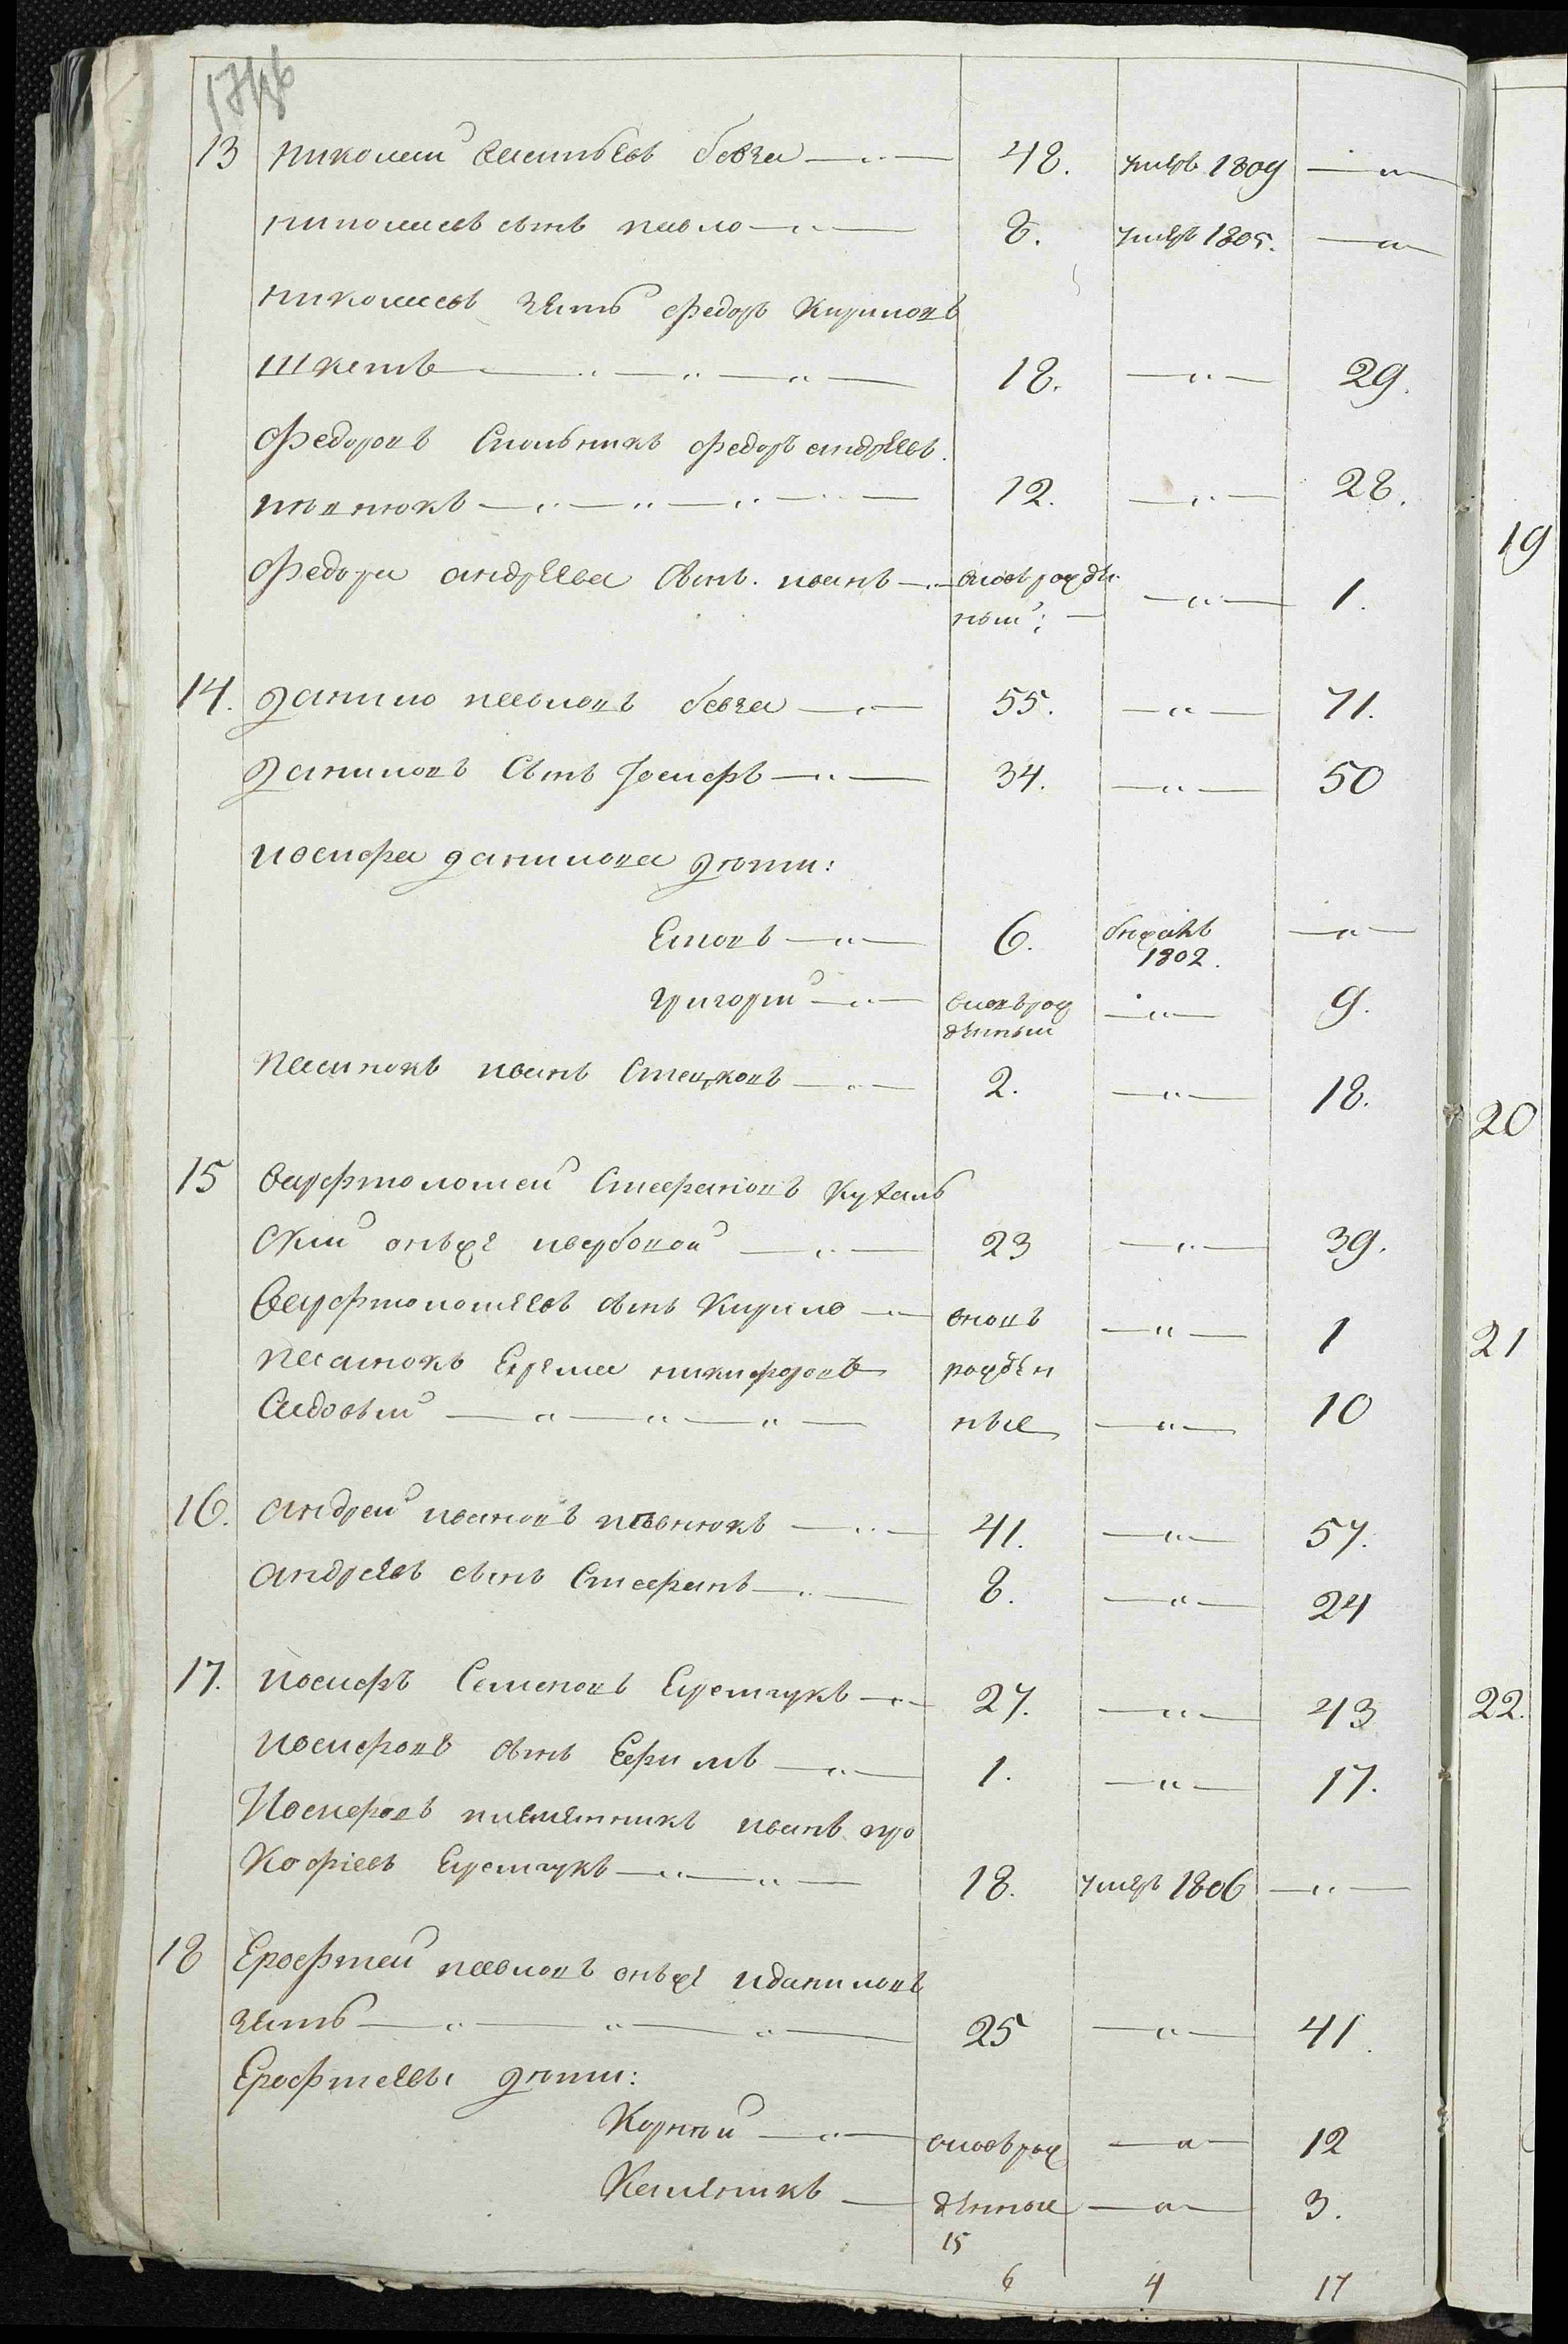 13 Николай Васильевъ бовча — „ — 48. умеръ 1809 — „ —
Николаевъ сынъ Павло — „ — 8. умеръ 1805. — „ —
Николаевъ зять Федоръ Кириловъ
Шкетъ — „ — „ — „ — 18. — „ — 29.
Федоровъ Спольникъ Федоръ андрѣевъ
— „ — „ — „ — 12. — „ — 28.
Федора андрѣева Сынъ иванъ — „ — вновьрожден
ный; — „ — 1.
14. Данило Павловъ бовча — „ — 55. — „ — 71.
Даниловъ Сынъ Іосифъ — „ — 34. — „ — 50
иосифа данилова дѣти:
— „ — 6. 1802. — „ —
григорий — „ — вновьрож
денный — „ — 9.
Пасинокъ иванъ Стецковъ — „ — 2. — „ — 18.
15 Варфтоломей Стефановъ
Ский онъже — „ — 23 — „ — 39.
Варфтоломѣевъ сынъ Кирило — „ — вновь — „ — 1
Пасинокъ Ерема никифоровъ рожден
Садовый — „ — „ — „ — ные — „ — 10
16. андрей ивановъ — „ — 41. — „ — 57.
андрѣевъ сынъ Стефанъ — „ — 8. — „ — 24
17. иосифъ Семеновъ Еремчукъ — „ — 27. — „ — 43
иосифовъ сынъ Ефимъ — „ — 1. — „ — 17.
Иосифовъ племянникъ иванъ про
Кофіевъ Еремчукъ — „ — „ — 18. умеръ 1806 — „ —
18 Ерофтей Павловъ онъже иданиловъ
зять — „ — „ — „ — 25 — „ — 41.
Ерофтеевы дѣти:
Корнѣй — „ — вновьрож — „ — 12
денные — „ — 3.
15
6 4 17
19
20
21
22.